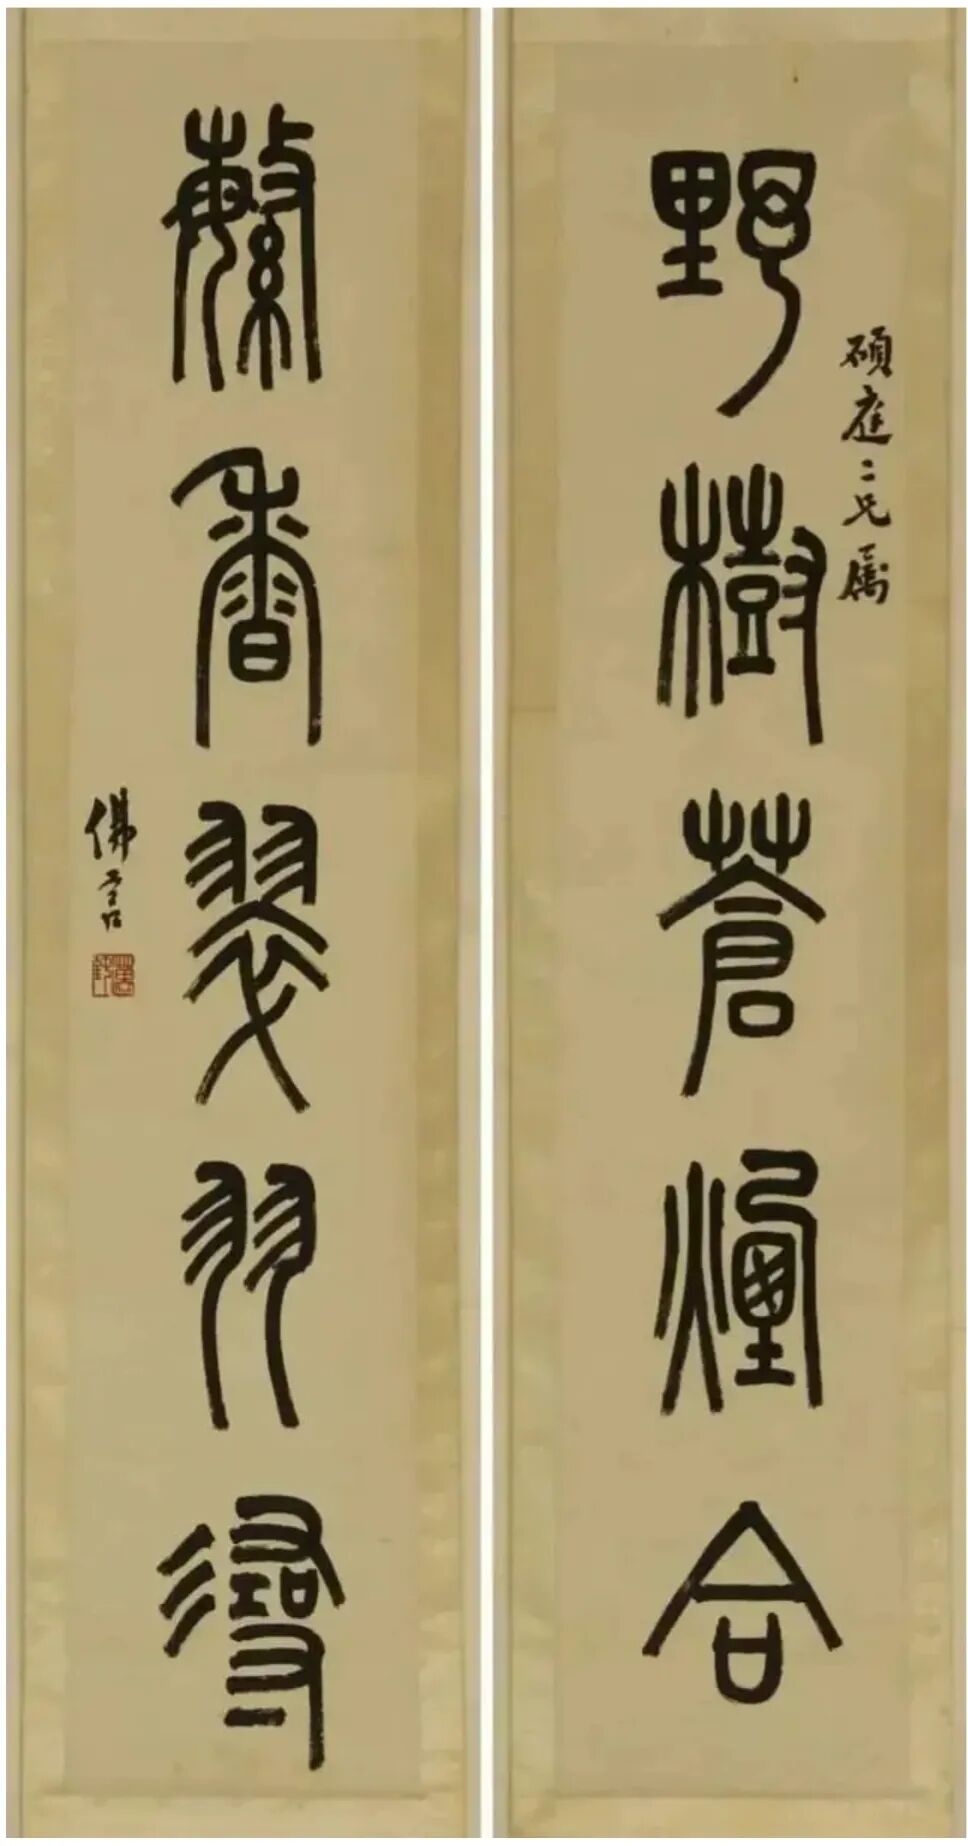 野樹蒼煙合
碩庭二兄屬
繁香翠羽尋
佛言